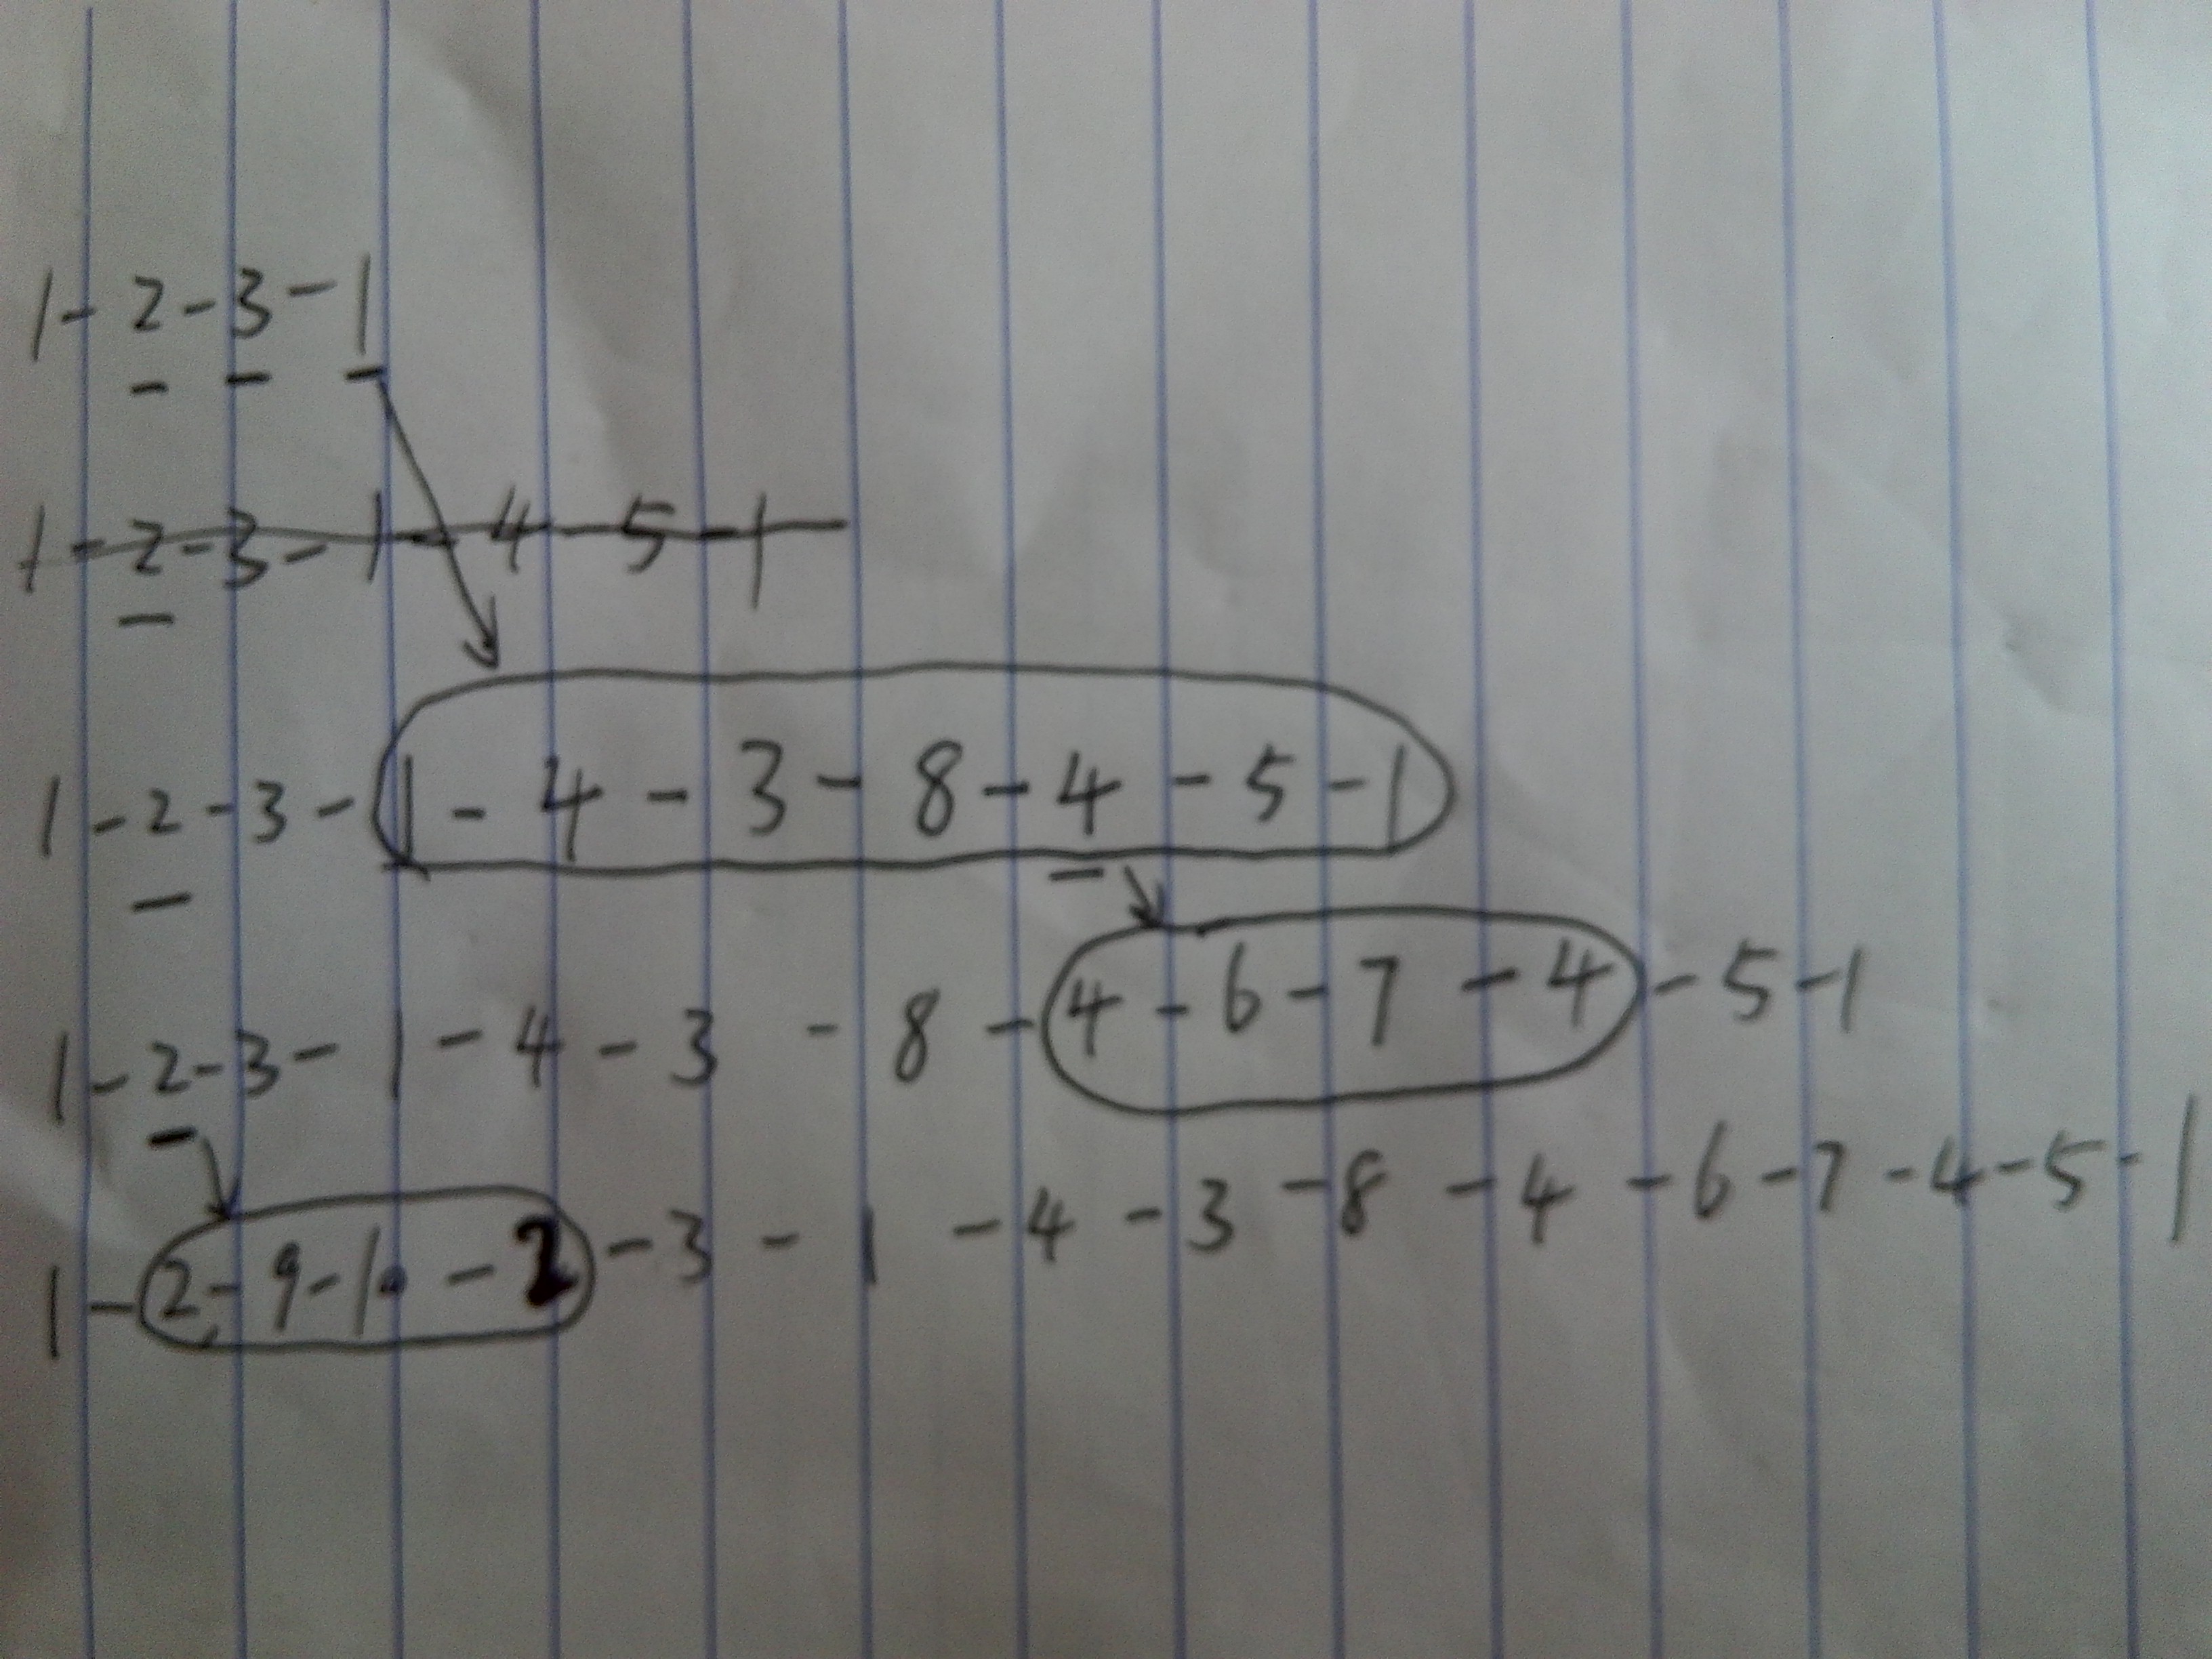 1-2-3-1
1-2-3-1-4-5-1
1-2-3-1-4-3-8-4-5-1
1-2-3-1-4-3-8-4-6-7-4-5-1
1-2-9-10-2-3-1-4-3-8-4-6-7-4-5-1